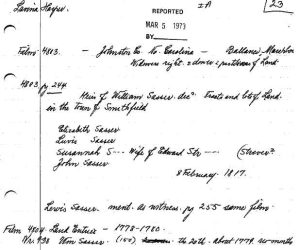 Lavina Hayes.
IA
23
REPORTED
MAR 5 1973
BY
Film 4803. - Johnston Co N. Carolina -
Widows right & dower & partitions of Land
4803 pg 244
Heirs of William Sasser decd Tracts and lots of Land
in the town of Smithfield
Elizabeth Sasser
Lewis Sasser
Susannah S--- Wife of Edward Str --- (Strover?
John Sasser
8 February 1817.
Lewis Sasser ment. as witness. pg 255 same film.
Film 4804 Land Entries - 1778-1780.
Nr. 938 Wm Sasser (150) the 20th about 1779 no month